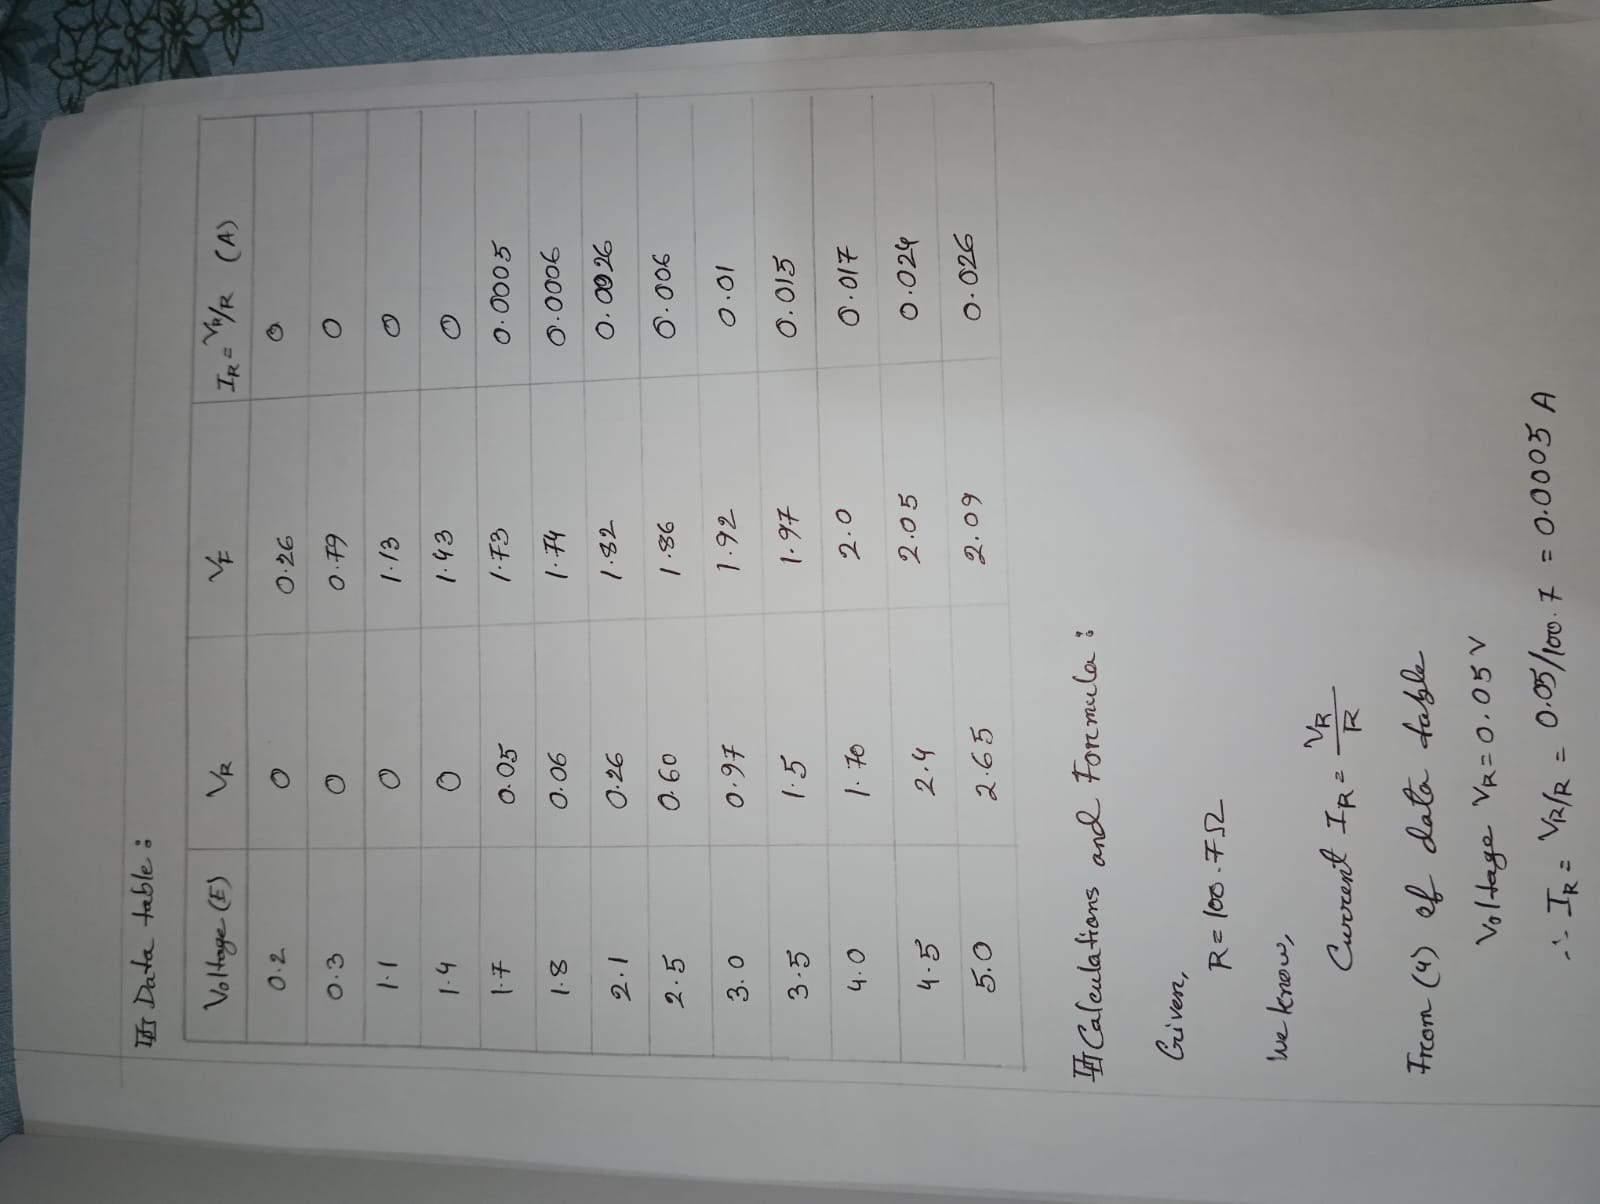 Data table:
Voltage (E) VR VF IR = VR/R (A)
0.2 0 0.26 0
0.3 0 0.79 0
1.1 0 1.13 0
1.4 0 1.43 0
1.7 0.05 1.73 0.0005
1.8 0.06 1.74 0.0006
2.1 0.26 1.82 0.0026
2.5 0.60 1.86 0.006
3.0 0.97 1.92 0.01
3.5 1.5 1.97 0.015
4.0 1.70 2.0 0.017
4.5 2.4 2.05 0.024
5.0 2.65 2.09 0.026
Calculations and Formula:
Given,
R = 100.7Ω
We know,
Current IR = VR/R
From (4) of data table
Voltage VR = 0.05 V
∴ IR = VR/R = 0.05/100.7 = 0.0005 A